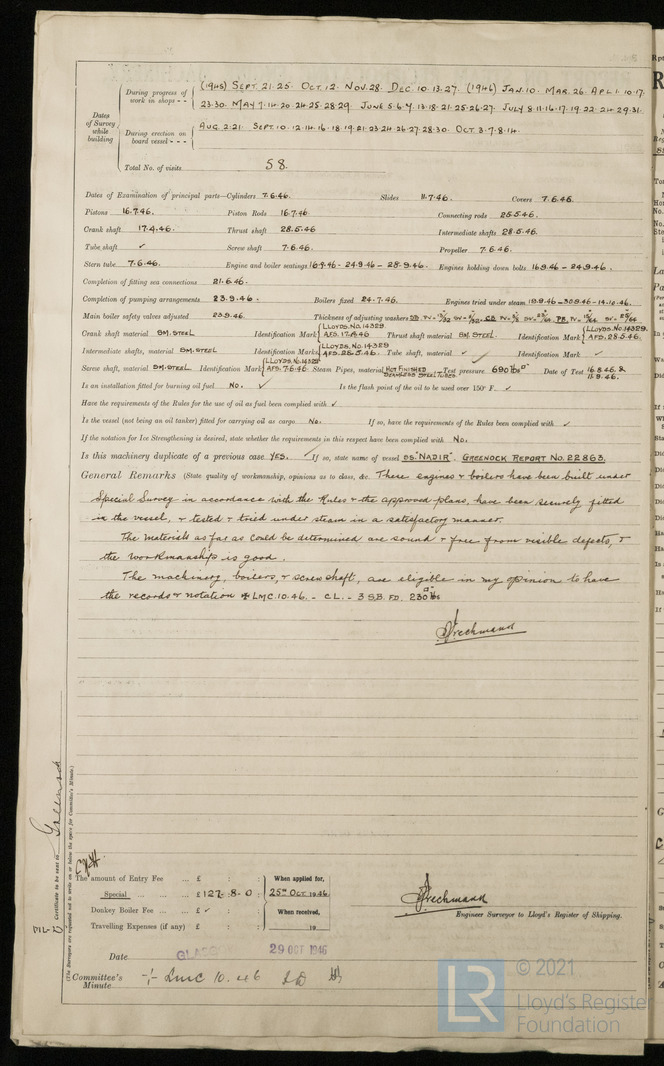 (1945) SEPT. 21. 25. OCT. 12. NOV. 28. DEC. 10. 13. 27. (1946) JAN. 10. MAR. 26. APL. 1. 10. 17.
During progress of work in shops - -
23. 30. MAY 7. 14. 20. 24. 25. 28. 29. JUNE 5. 6. 7. 13. 18. 21. 25. 26. 27. JULY 8. 11. 16. 17. 19. 22. 24. 29. 31.
Dates of Survey while building
During erection on board vessel - - -
AUG. 2. 21. SEPT. 10. 12. 14. 16. 18. 19. 21. 23. 24. 26. 27. 28. 30. OCT. 3. 7. 8. 14.
Total No. of visits 58.
Dates of Examination of principal parts—Cylinders 7.6.46. Slides 11.7.46. Covers 7.6.46.
Pistons 16.7.46. Piston Rods 16.7.46. Connecting rods 25.5.46.
Crank shaft 17.4.46. Thrust shaft 28.5.46 Intermediate shafts 28.5.46.
Tube shaft ✓ Screw shaft 7.6.46. Propeller 7.6.46.
Stern tube 7.6.46. Engine and boiler seatings 16.9.46 - 24.9.46 - 28.9.46. Engines holding down bolts 16.9.46 - 24.9.46.
Completion of fitting sea connections 21.6.46.
Completion of pumping arrangements 23.9.46. Boilers fixed 24.7.46. Engines tried under steam 19.9.46 - 30.9.46 - 14.10.46.
Main boiler safety valves adjusted 23.9.46. Thickness of adjusting washers
Crank shaft material SM. STEEL Identification Mark LLOYDS. NO. 14329. AFS. 17.4.46 Thrust shaft material SM. STEEL. Identification Mark LLOYDS. NO. 14329. AFS. 28.5.46.
Intermediate shafts, material SM. STEEL Identification Marks LLOYDS. NO. 14329 AFS. 28.5.46. Tube shaft, material ✓ Identification Mark ✓
Screw shaft, material SM. STEEL. Identification Mark LLOYDS. NO. 14329 AFS. 7.6.46 Steam Pipes, material HOT FINISHED SEAMLESS STEEL TUBES Test pressure 690 lbs □" Date of Test 16.8.46. & 11.9.46.
Is an installation fitted for burning oil fuel No. ✓ Is the flash point of the oil to be used over 150° F. ✓
Have the requirements of the Rules for the use of oil as fuel been complied with ✓
Is the vessel (not being an oil tanker) fitted for carrying oil as cargo No. If so, have the requirements of the Rules been complied with ✓
If the notation for Ice Strengthening is desired, state whether the requirements in this respect have been complied with No.
Is this machinery duplicate of a previous case YES. If so, state name of vessel SS. "NADIR". GREENOCK REPORT No. 22863.
General Remarks (State quality of workmanship, opinions as to class, &c. These engines & boilers have been built under
Special Survey in accordance with the Rules & the approved plans, have been securely fitted
in the vessel, & tested & tried under steam in a satisfactory manner.
The materials as far as could be determined are sound & free from visible defects, &
the workmanship is good.
The machinery, boilers, & screwshaft, are eligible in my opinion to have
the records & notation ✠ LMC. 10.46. - CL. - 3 S.B. FD. 230 lbs □"
The amount of Entry Fee ... £ : : When applied for,
Special ... £ 127 - 8 - 0 25th OCT 1946
Donkey Boiler Fee ... £ ✓ : When received,
Travelling Expenses (if any) £ : : 19
Engineer Surveyor to Lloyd's Register of Shipping.
Date 29 OCT 1946
Committee's Minute + LMC 10.46
Certificate to be sent to Greenock
(The Surveyors are requested not to write on or below the space for Committee's Minute.)
LR © 2021
Lloyd's Register
Foundation